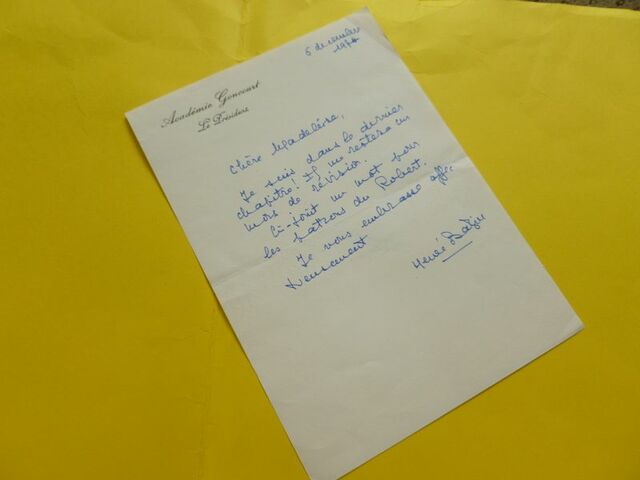 Académie Goncourt
Le Président
6 décembre
Chère Madeleine,
Je suis dans le dernier
chapitre! Il me restera un
mois de révision.
Ci-joint un mot pour
les patrons du Robert.
Je vous embrasse affec
tueusement
Hervé Bazin